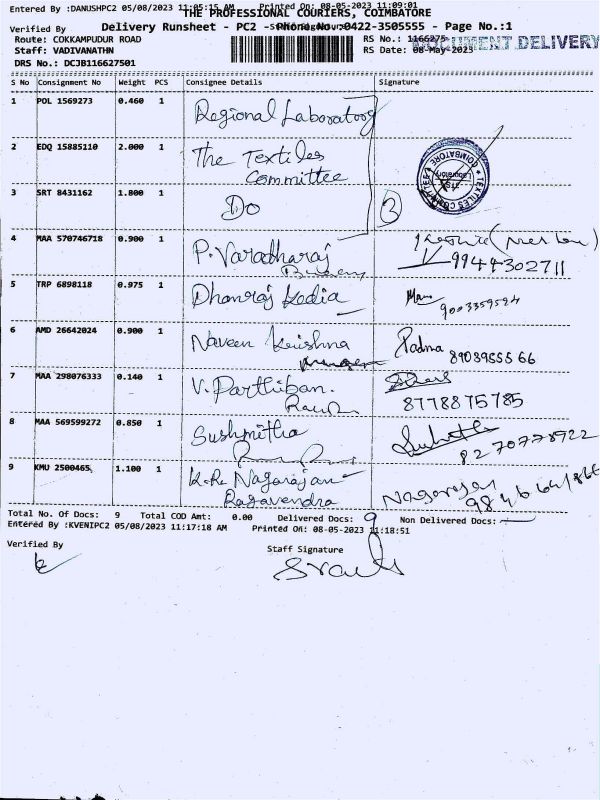 Entered By :DANUSHPC2 05/08/2023 11:05:15 AM Printed On: 08-05-2023 11:09:01
THE PROFESSIONAL COURIERS, COIMBATORE
Verified By
Delivery Runsheet - PC2 - Phone No.:0422-3505555 - Page No.:1
Route: COKKAMPUDUR ROAD
RS No.: 1166275
DOCUMENT DELIVERY
Staff: VADIVANATHN
RS Date: 08-May-2023
DRS No.: DCJB116627501
S No Consignment No Weight PCS Consignee Details Signature
1 POL 1569273 0.460 1 Regional Laboratory
2 EDQ 15885110 2.000 1 The Textiles
Committee
TEXTILES COMMITTEE
COIMBATORE
Laboratory
3 SRT 8431162 1.800 1 Do 3
4 MAA 570746718 0.900 1 P. Varadharaj
9944302711
5 TRP 6898118 0.975 1 Dhanraj Kedia
9003359524
6 AMD 26642024 0.900 1 Naveen Krishna Padma 8903855566
7 MAA 298076333 0.140 1 V. Parthiban.
8778875785
8 MAA 569599272 0.850 1 Sushmitha
8270778922
9 KMU 2500465 1.100 1 K.R. Nagarajan
Ragavendra Nagarajan
Total No. Of Docs: 9 Total COD Amt: 0.00 Delivered Docs: 9 Non Delivered Docs:
Entered By :KVENIPC2 05/08/2023 11:17:18 AM Printed On: 08-05-2023 11:18:51
Verified By
Staff Signature